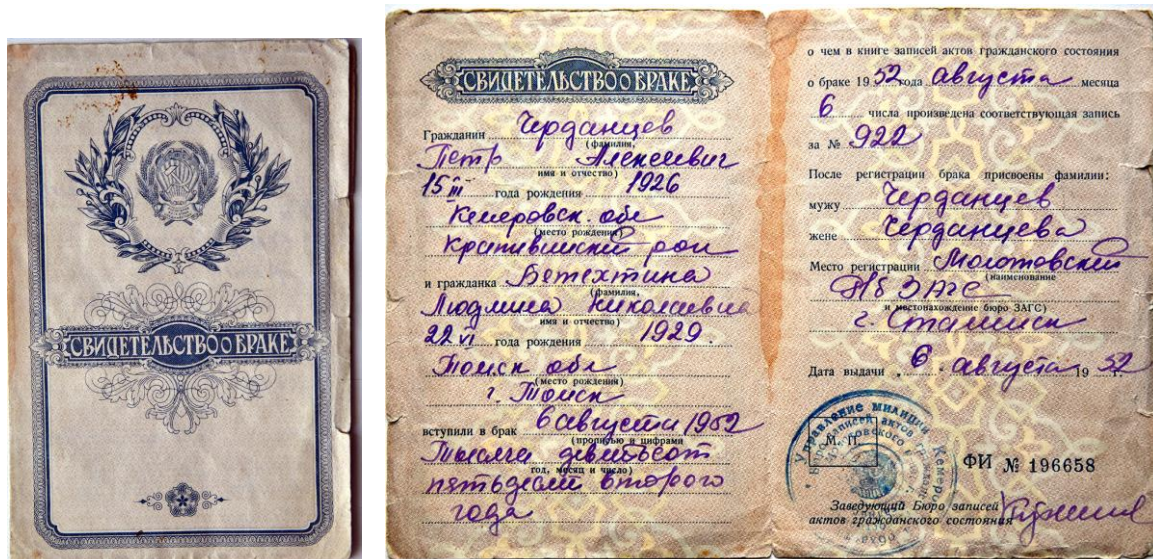 СВИДЕТЕЛЬСТВО О БРАКЕ
СВИДЕТЕЛЬСТВО О БРАКЕ
Гражданин Черданцев
(фамилия,
Петр Алексеевич
имя и отчество)
15 III года рождения 1926
Кемеровск. обл
(место рождения)
Крапивинский рон
и гражданка Бетехтина
(фамилия,
Людмила Николаевна
имя и отчество)
22 VI года рождения 1929.
Томск обл
(место рождения)
г. Томск
вступили в брак 6 августа 1952
(прописью и цифрами
Тысяча девятьсот
год, месяц и число)
пятьдесят второго
года
о чем в книге записей актов гражданского состояния
о браке 1952 года августа месяца
6 числа произведена соответствующая запись
за № 922
После регистрации брака присвоены фамилии:
мужу Черданцев
жене Черданцева
Место регистрации Молотовский
(наименование
ЗАГС
и местонахождение бюро ЗАГС)
г. Сталинск
Дата выдачи „ 6 . августа 19 52
М. П.
Управление милиции
ФИ № 196658
Заведующий Бюро записей
актов гражданского состояния